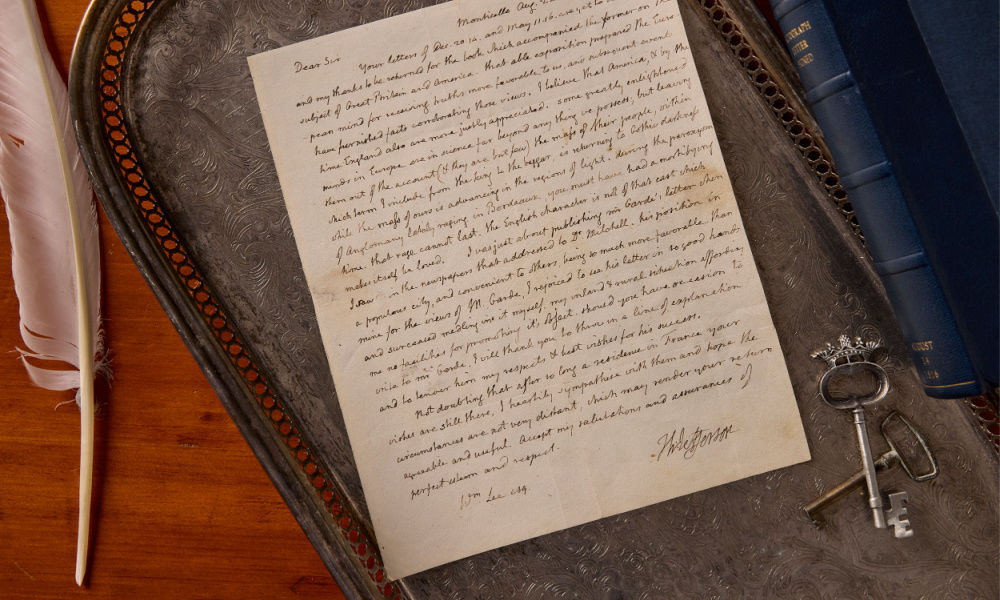 Monticello Aug. 2
Dear Sir
Your letters of Dec. 20. 14. and May 11. 16. are yet to
and my thanks to be returned for the book which accompanied the former on the
subject of Great Britain and America. that able exposition prepared the Euro
pean mind for recieving truths more favorable to us, and subsequent events
have furnished facts corroborating those views. I believe that America, & by the
time England also are more justly appreciated. some greatly enlightened
minds in Europe are in science far beyond any thing we possess; but leaving
them out of the account (& they are but few) the mass of their people, within
which term I include from the king to the beggar, is returning to Gothic darkness
while the mass of ours is advancing in the regions of light. during the paroxysm
of Anglomany lately raging in Bordeaux, you must have had a mortifying
time. that rage cannot last. the English character is not of that cast which
makes itself be loved. I was just about publishing mr Garde's letter when
I saw in the newspapers that addressed to Dr. Mitchell. his position in
a populous city, and convenient to others being so much more favorable than
mine for the views of M. Garde, I rejoiced to see his letter in so good hands
and surceased medling in it myself. my inland & rural situation affording
me no facilities for promoting it's object. should you have occasion to
write to mr Garde, I will thank you to throw in a line of explanation
and to convey to him my respects & best wishes for his success.
Not doubting that after so long a residence in France your
wishes are still there, I heartily sympathise with them and hope the
circumstances are not very distant, which may render your return
agreeable and useful. Accept my salutations and assurances of
perfect esteem and respect.
Th: Jefferson
Wm Lee esq.
AUGUST